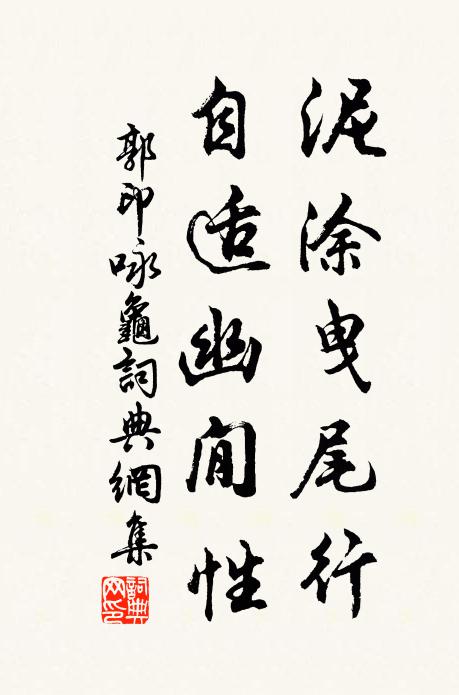 泥涂曳尾行
自适幽闲性
郭印咏龜詞典網集
詞典網印